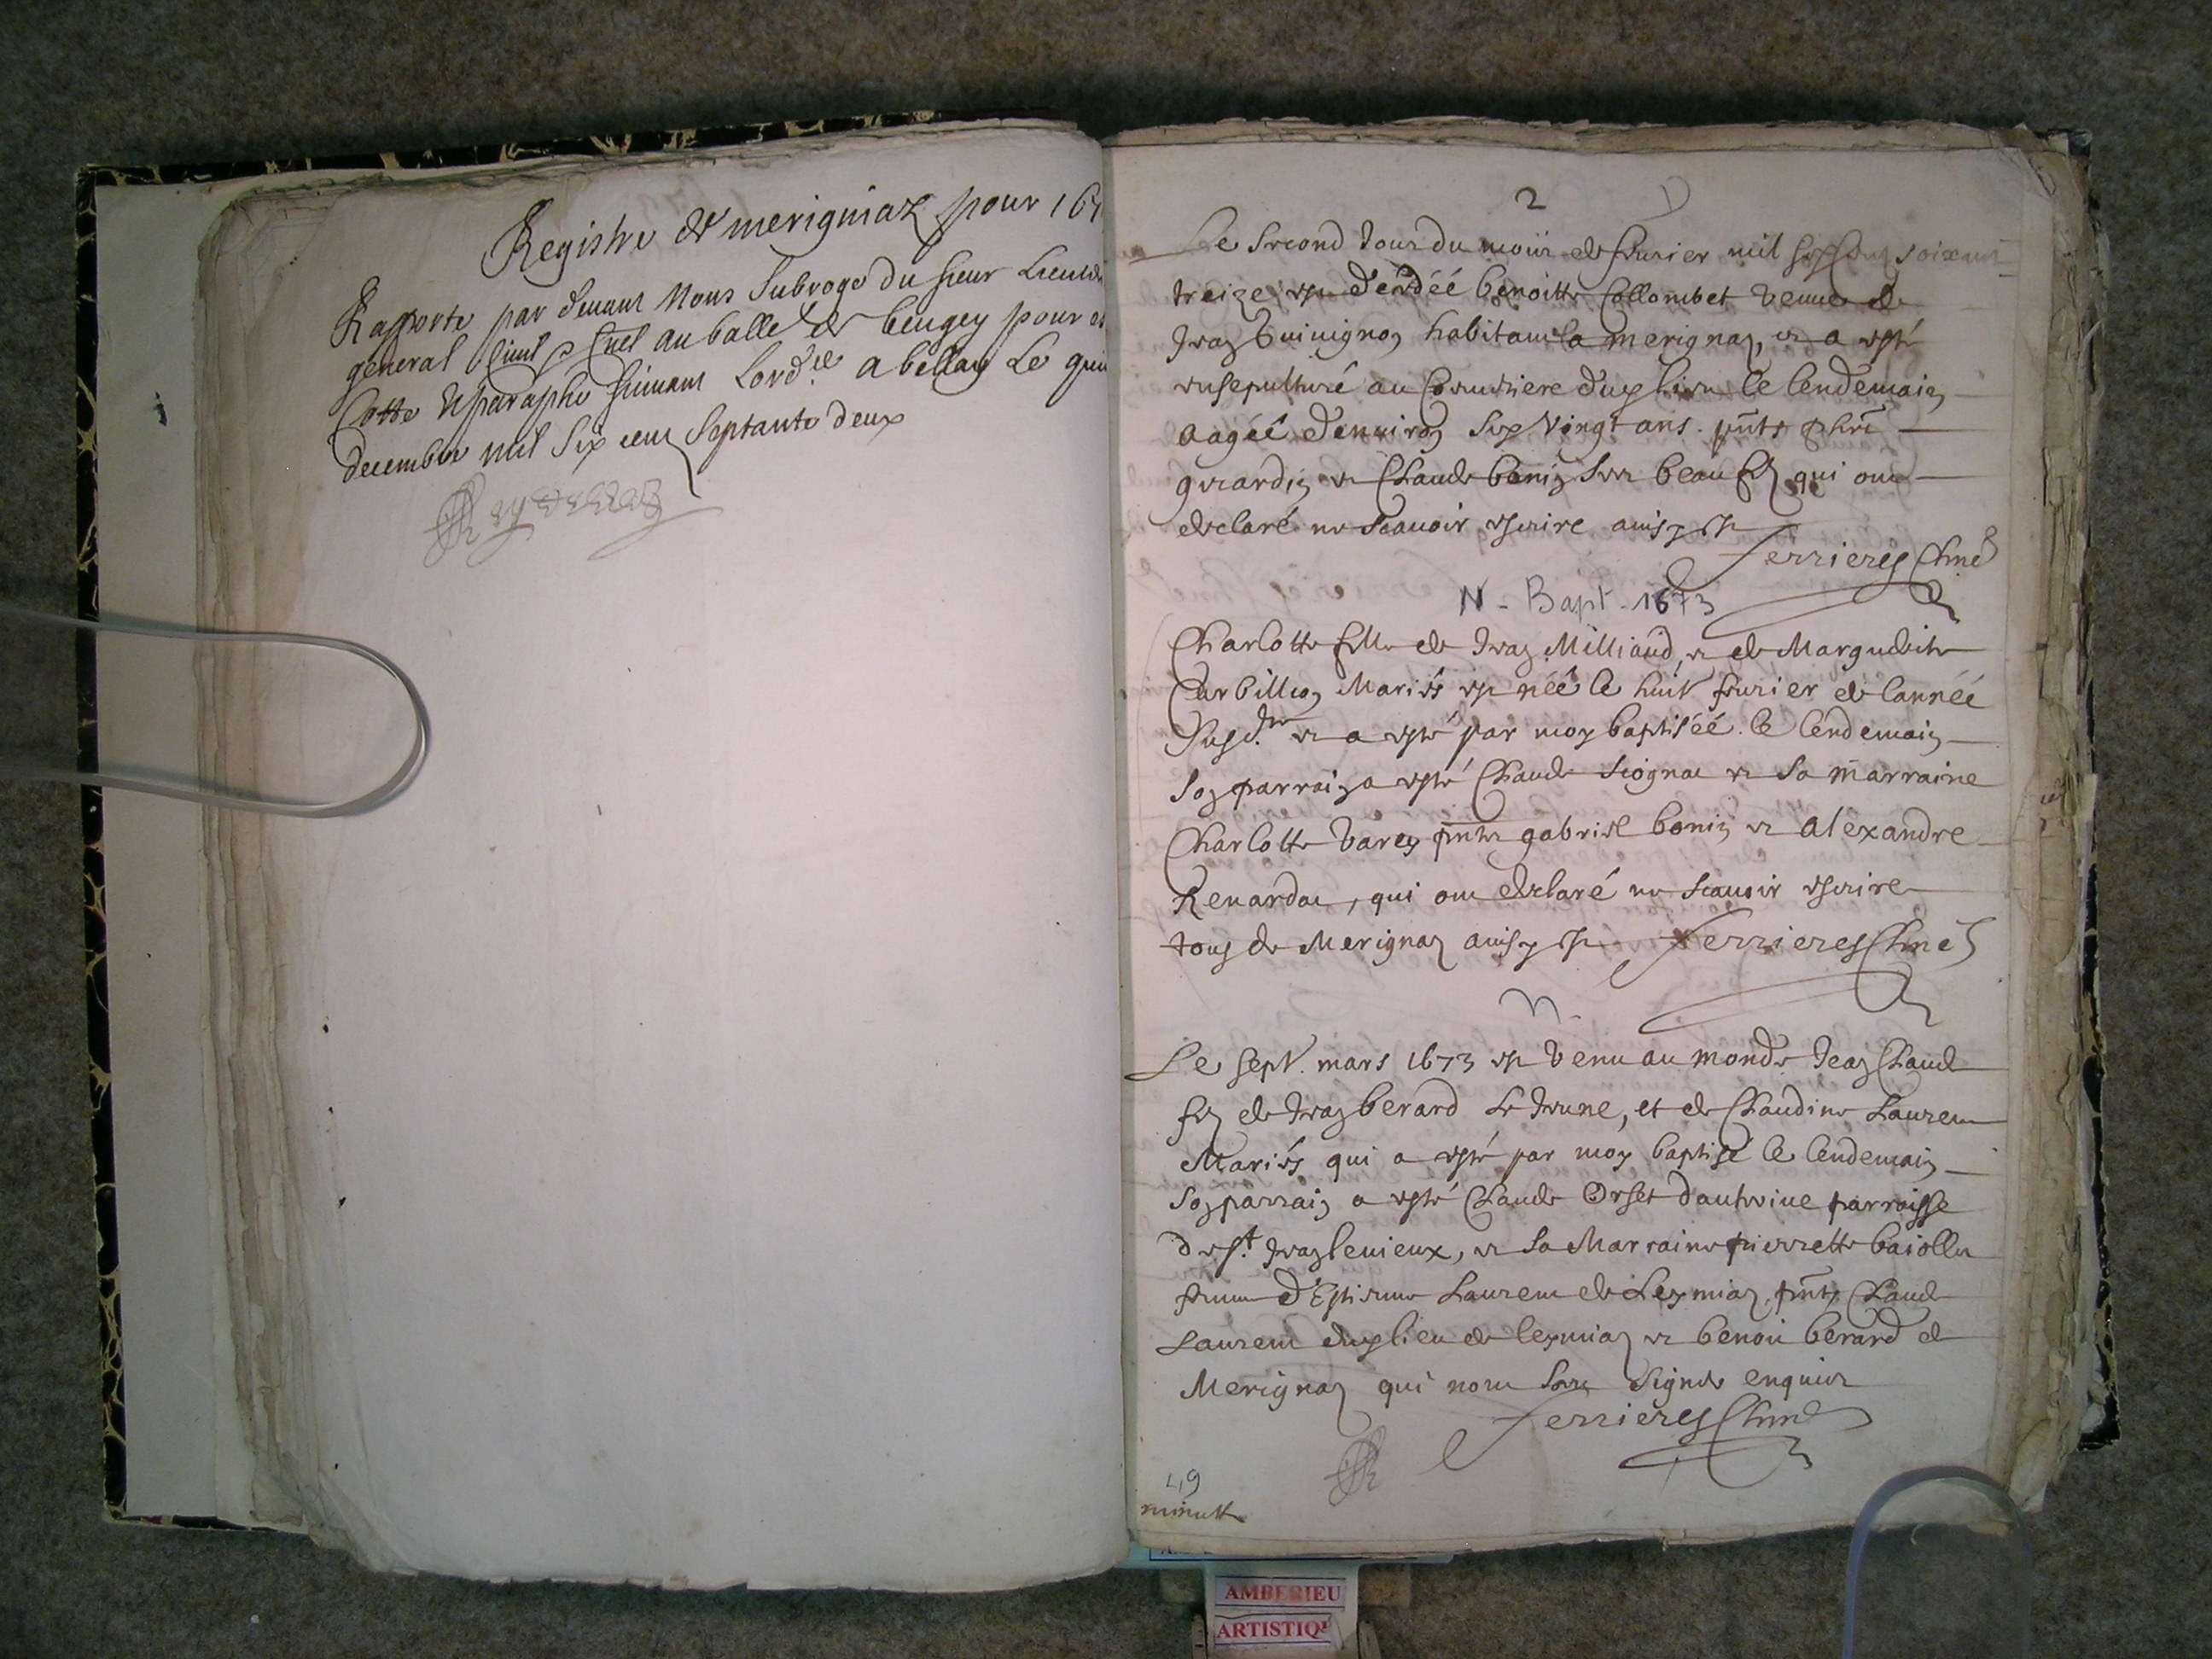 Registre de merigniaz pour 167
Rapporte par devant Nous Subroge du sieur Lieute
general Civil & Cnel au balle de beugey pour es
Cotte & paraphe suivant Lord.ce a bellay Le quin
decembre mil six cent septante deux
2
Le second jour du mois de feurier mil six cent soixant
treize est dé benoitte Collombet veuue de
Jean habitant a merignaz, et a esté
ensepulturé au Cemetiere dud lieu le lendemain
aagéé d'enuiron six vingt ans. pnts
girardin et Claude bonin son beau fils qui ont
declaré ne scauoir escrire ainsy est
Ferrieres Curé
N - Bapt - 1673
Charlotte fille de Jean Milliand, et de Marguerite
Carbillion Mariés est néé le huit feurier de lannéé
susd.te et a esté par moy baptiséé le lendemain
son parrain a esté Claude et sa marraine
Charlotte Varey pntes gabriel bonin et alexandre
Renardat, qui ont declaré ne scauoir escrire
tous de Merignaz ainsy est Ferrieres Curé
N.
Le sept. mars 1673 est venu au monde Jean Claude
fils de Jean berard le Jeune, et de Claudine Laurent
Mariés qui a esté par moy baptisé le lendemain
son parrain a esté Claude Orset parroisse
de st. Jean le vieux, et sa Marraine pierrette
femme d'Estienne Laurent de Leymiaz, pnts Claude
Laurent dud lieu de leymiaz et benoit berard de
Merignaz qui nont sceu signer enquis
Ferrieres Curé
49
minutte
AMBERIEU
ARTISTIQ